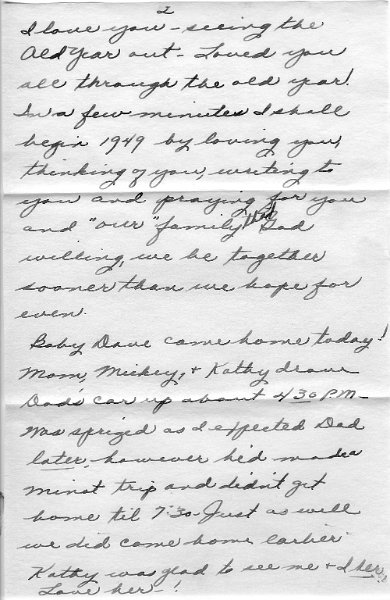 2
I love you - seeing the
Old Year out - Loved you
all through the old year!
In a few minutes I shall
begin 1949 by loving you,
thinking of you, writing to
you and praying for you
and "our" family that God
willing, we be together
sooner than we hope for
even.
Baby Dave came home today!
Mom, Mickey, & Kathy drove
Dad's car up about 4:30 P.M.
Was sprized as I expected Dad
later, however he'd made a
Minot trip and didn't get
home til 7:30. Just as well
we did come home earlier.
Kathy was glad to see me & I her,
Love her - !